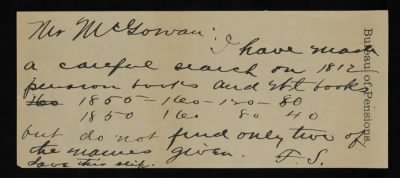 Mr McGowan:
I have made
a careful search on 1812
pension books and Wt books
160 1850 - 160 - 120 - 80
1850 160 80 40
but do not find only two of
the names given.
Save this slip. F.S.
Bureau of Pensions.